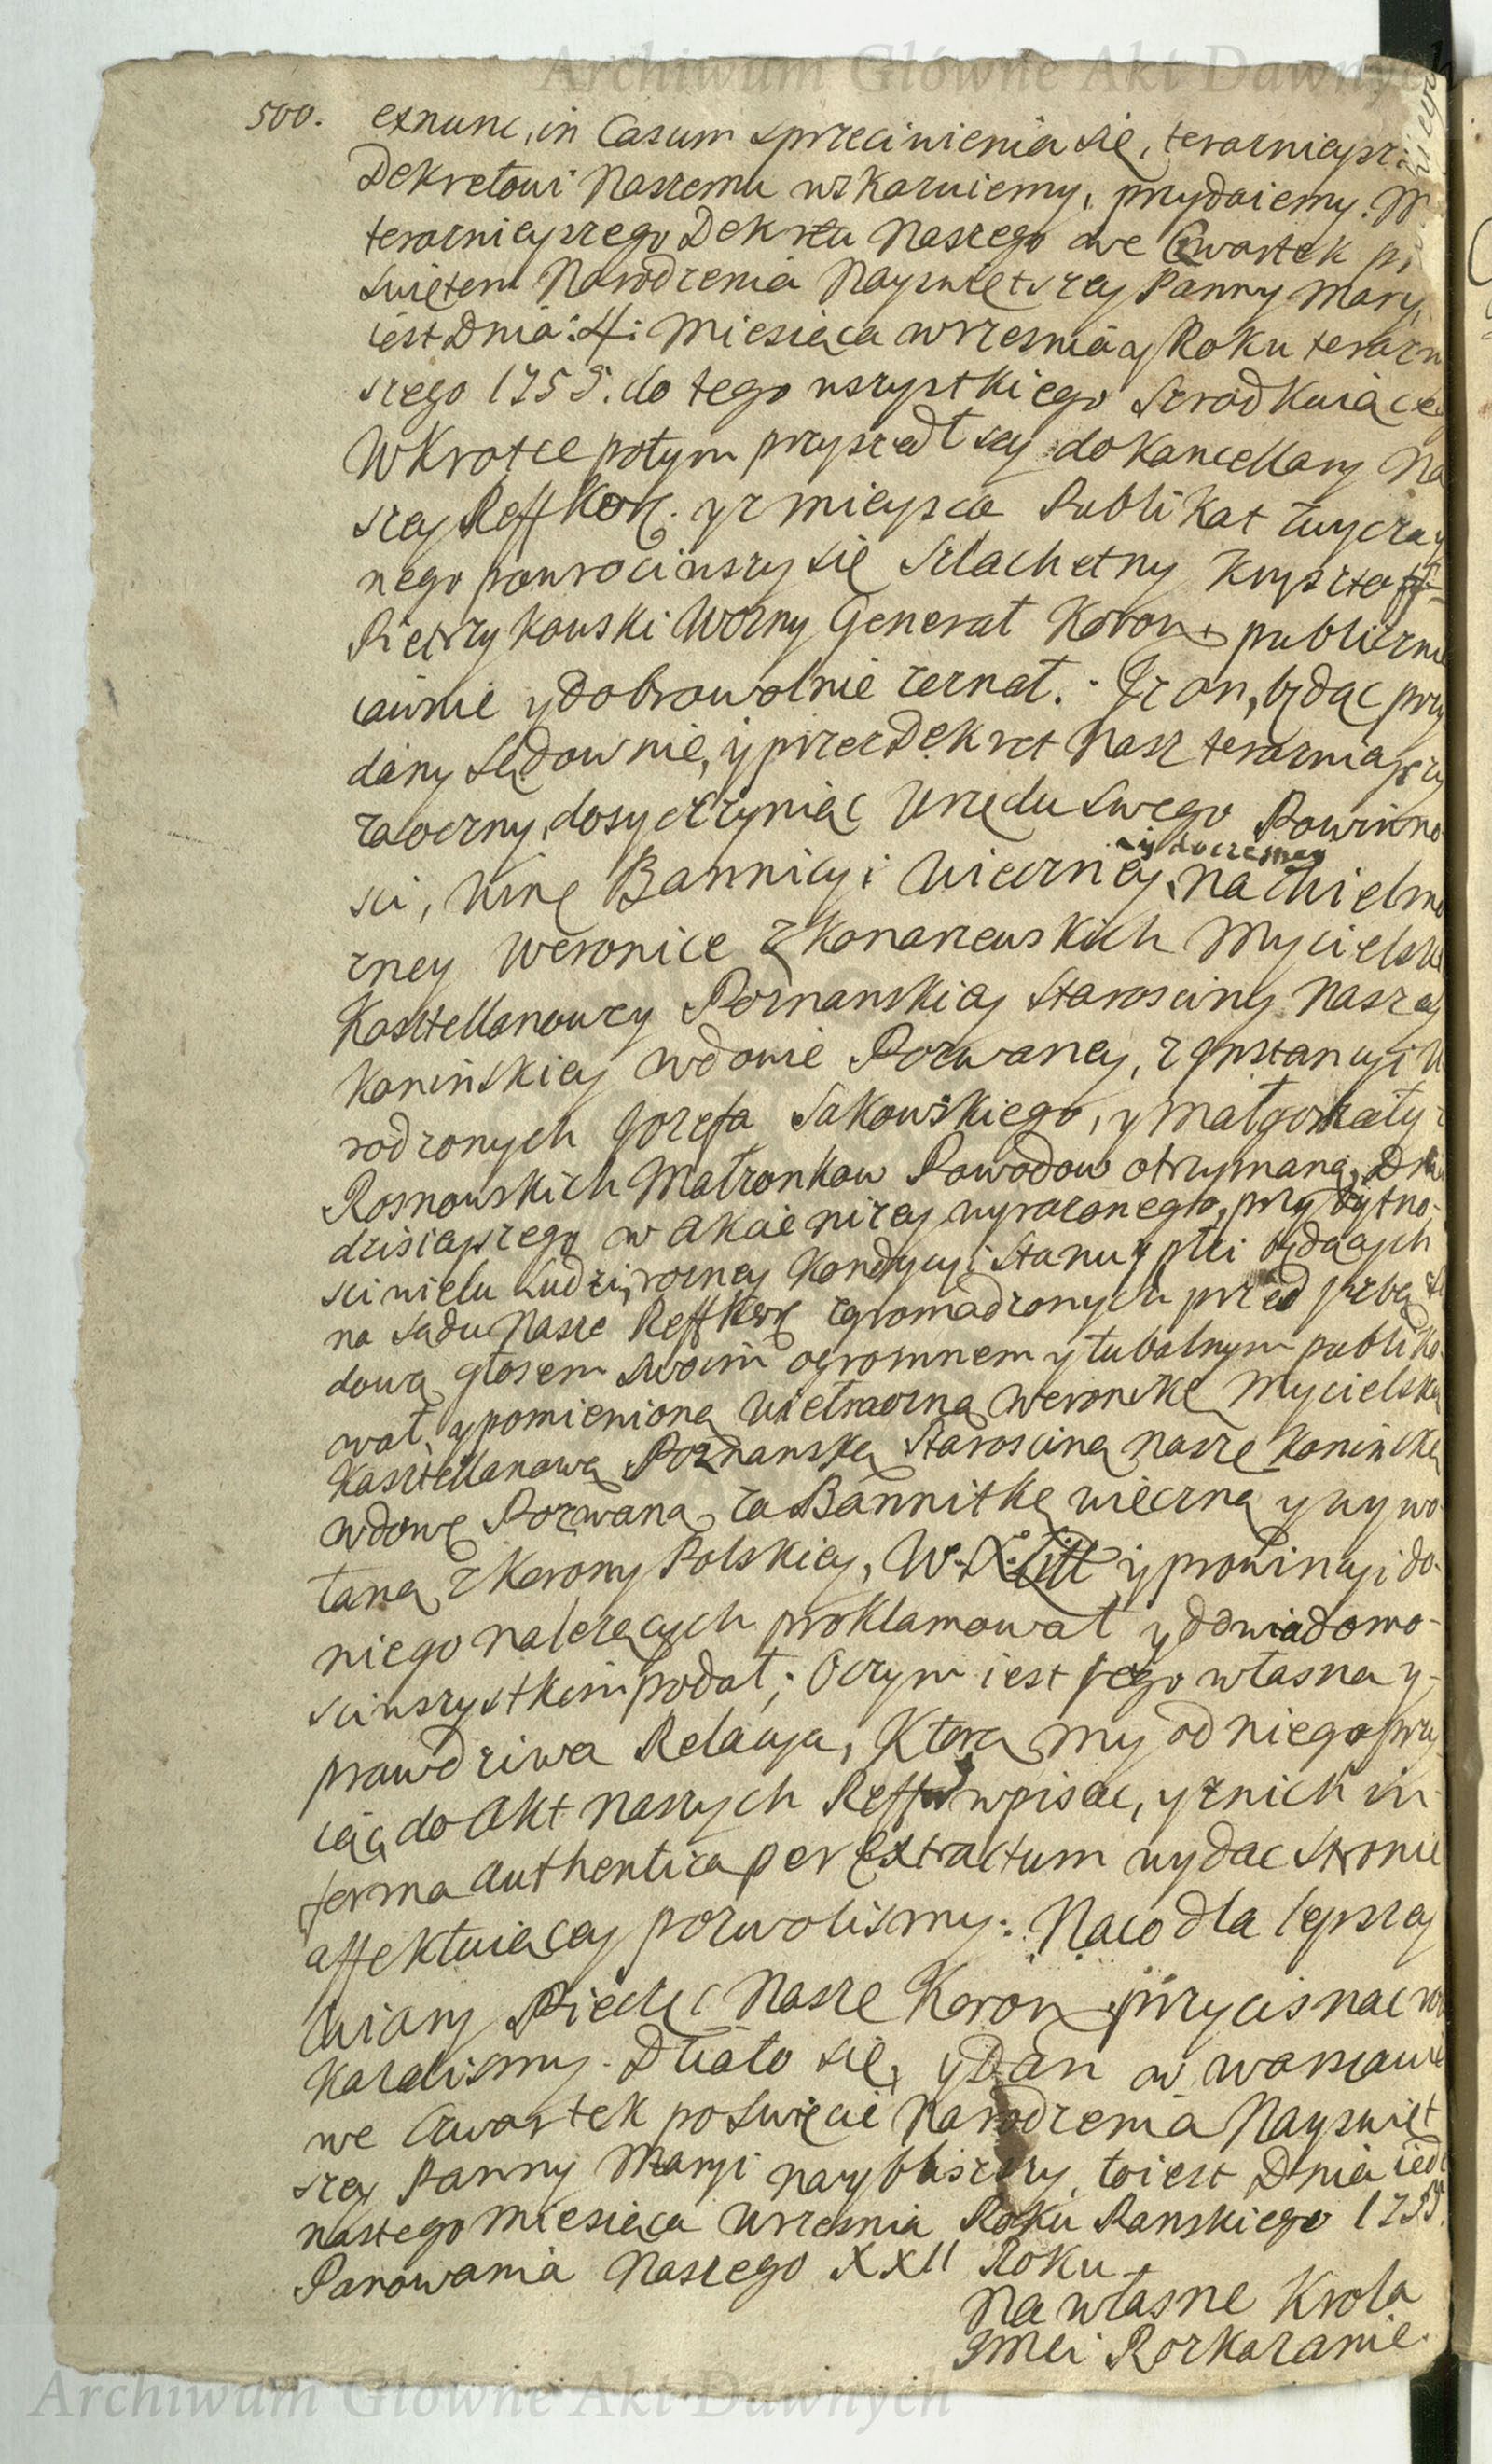 Archiwum Główne Akt Dawnych
500. exnunc, in Casum sprzeciwienia się, teraznieysz
Dekretowi Naszemu wskazuiemy, przydaiemy. W
teraznieyszego Dekretu Naszego we Czwartek p
Swiętem Narodzenia Nayswiętszey Panny Mary
iest Dnia: 4: Miesiąca wrzesnia y Roku terazn
szego 1755. do tego wszystkiego szrodkuiące
Wkrotce potym przyszedłszy do Kancellaryi Na
szey Reff Kor. y z mieysca Publikat zwyczay
nego powrociwszy się Szlachetny Krysztoff
Pietrzykowski Wozny Generał Koron publicznie
iawnie y dobrowolnie zeznał. Iz on, będąc przy
dany Sądownie, y przez Dekret Nasz teraznieyszy
zaoczny, dosyc czyniąc Urzędu Swego Powinno
sci, winę Bannicyi Wieczney y doczesney na Wielmo
zney Weronice z Konarzewskich Mycielski
Kasztellanowey Poznanskiey Starosciny Naszey
Koninskiey wdowie Pozwaney, z Instancyi U
rodzonych Jozefa Sakowskiego, y Małgorzaty z
Rosnowskich Małzonkow Powodow otrzymaną, Dnia
dzisieyszego w akcie nizey wyrazonego, przy bytno-
sci wielu Ludzi, rozney Kondycyi Stanu y płci będących
na Sądu Nasze Reff Kor zgromadzonych przed Izbą Są
dową głosem swoim ogromnem y tubalnym publiko-
wał, y pomienioną Wielmozną Weronikę Mycielską
Kasztellanową Poznanską Staroscinę nasze Koninską
wdowę Pozwaną, za Bannitkę wieczną y wywo-
łaną z Korony Polskiey, W. X. Litt y prowincyi do-
niego nalezących proklamował y do wiadomo-
sci wszystkim podał; Oczym iest jego własna y-
prawdziwa Relacya, Ktorą my od niego przy-
iąc do Akt Naszych Reff wpisac, y z nich in-
forma authentica per Extractum wydac Stronie
affektuiącey pozwolismy. Naco dla lepszey
Wiary Pieczęc Nasze Koron przycisnac roz
Kazalismy. Działo się, y Dan w Warszawie
we Czwartek po Swięcie Narodzenia Nayswięt
szey Panny Maryi nayblizszy, to iest Dnia iede
nastego miesiąca Wrzesnia Roku Panskiego 1755.
Panowania Naszego XXII Roku
Na własne Krola
Jmci Rozkazanie.
Archiwum Główne Akt Dawnych